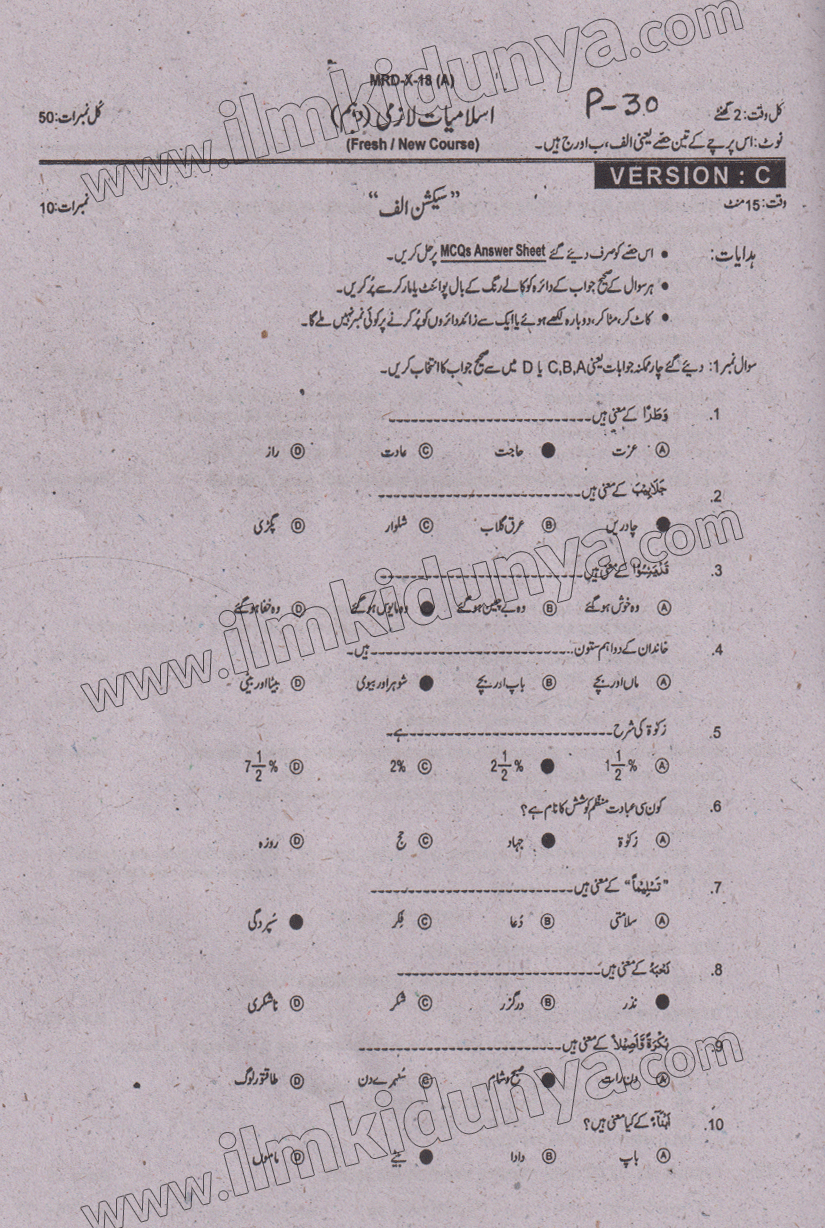 MRD-X-18 (A)
کل وقت: 2 گھنٹے
P-30
اسلامیات لازمی (دہم)
کُل نمبرات: 50
نوٹ: اس پرچے کے تین حصے یعنی الف، ب اور ج ہیں۔
(Fresh / New Course)
VERSION : C
وقت: 15 منٹ
”سیکشن الف“
نمبرات: 10
ہدایات:
• اس حصے کو صرف دیئے گئے MCQs Answer Sheet پر حل کریں۔
• ہر سوال کے صحیح جواب کے دائرہ کو کالے رنگ کے بال پوائنٹ یا مارکر سے پُر کریں۔
• کاٹ کر، مٹا کر، دوبارہ لکھے ہوئے یا ایک سے زائد دائروں کو پُر کرنے پر کوئی نمبر نہیں ملے گا۔
سوال نمبر 1: دیئے گئے چار ممکنہ جوابات یعنی C,B,A یا D میں سے صحیح جواب کا انتخاب کریں۔
1. وَطَرًا کے معنی ہیں
Ⓐ عزت ● حاجت Ⓒ عادت Ⓓ راز
2. جَلَابِیْبَ کے معنی ہیں
● چادریں Ⓑ عرق گلاب Ⓒ شلوار Ⓓ پگڑی
3. کے معنی ہیں
Ⓐ وہ خوش ہو گئے Ⓑ وہ بے چین ہو گئے ● وہ مایوس ہو گئے Ⓓ وہ خفا ہو گئے
4. خاندان کے دو اہم ستون ہیں۔
Ⓐ ماں اور بچے Ⓑ باپ اور بچے ● شوہر اور بیوی Ⓓ بیٹا اور بیٹی
5. زکوٰۃ کی شرح ہے۔
Ⓐ 1 1/2 % ● 2 1/2 % Ⓒ 2% Ⓓ 7 1/2 %
6. کون سی عبادت منظم کوشش کا نام ہے؟
Ⓐ زکوٰۃ ● جہاد Ⓒ حج Ⓓ روزہ
7. ”تَسْلِیْمًا“ کے معنی ہیں
Ⓐ سلامتی Ⓑ دُعا Ⓒ فِکر ● سُپردگی
8. نَحْبَهٗ کے معنی ہیں
● نذر Ⓑ درگزر Ⓒ شکر Ⓓ ناشکری
9. بُکْرَةً وَّاَصِیْلًا کے معنی ہیں
Ⓐ دن رات ● صبح و شام Ⓒ سُنہرے دن Ⓓ طاقتور لوگ
10. اَبْنَآءِ کے کیا معنی ہیں؟
Ⓐ باپ Ⓑ دادا ● بیٹے Ⓓ ماموں
www.ilmkidunya.com
www.ilmkidunya.com
www.ilmkidunya.com